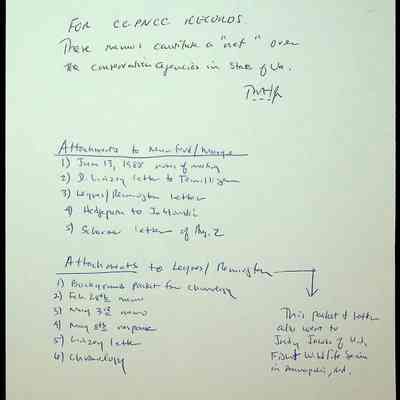 FOR CCPNCC RECORDS
These memos constitute a "net" over
the conservation agencies in State of Va.
Attachments to Mumford/
1) June 13, 1988 memo of meeting
2) D. Linzey letter to Terwilliger
3) Leynes/Remington letter
4) Hedgepeth to Jablonski
5) letter of Aug. 2
Attachments to Leynes/Remington
1) Background packet for
2) Feb. 28th memo
3) May 3rd memo
4) May 8th response
5) Linzey letter
6) Chronology
This packet & letter
also went to
Judy Jacobs of U.S.
Fish & Wildlife Service
in Annapolis, Md.